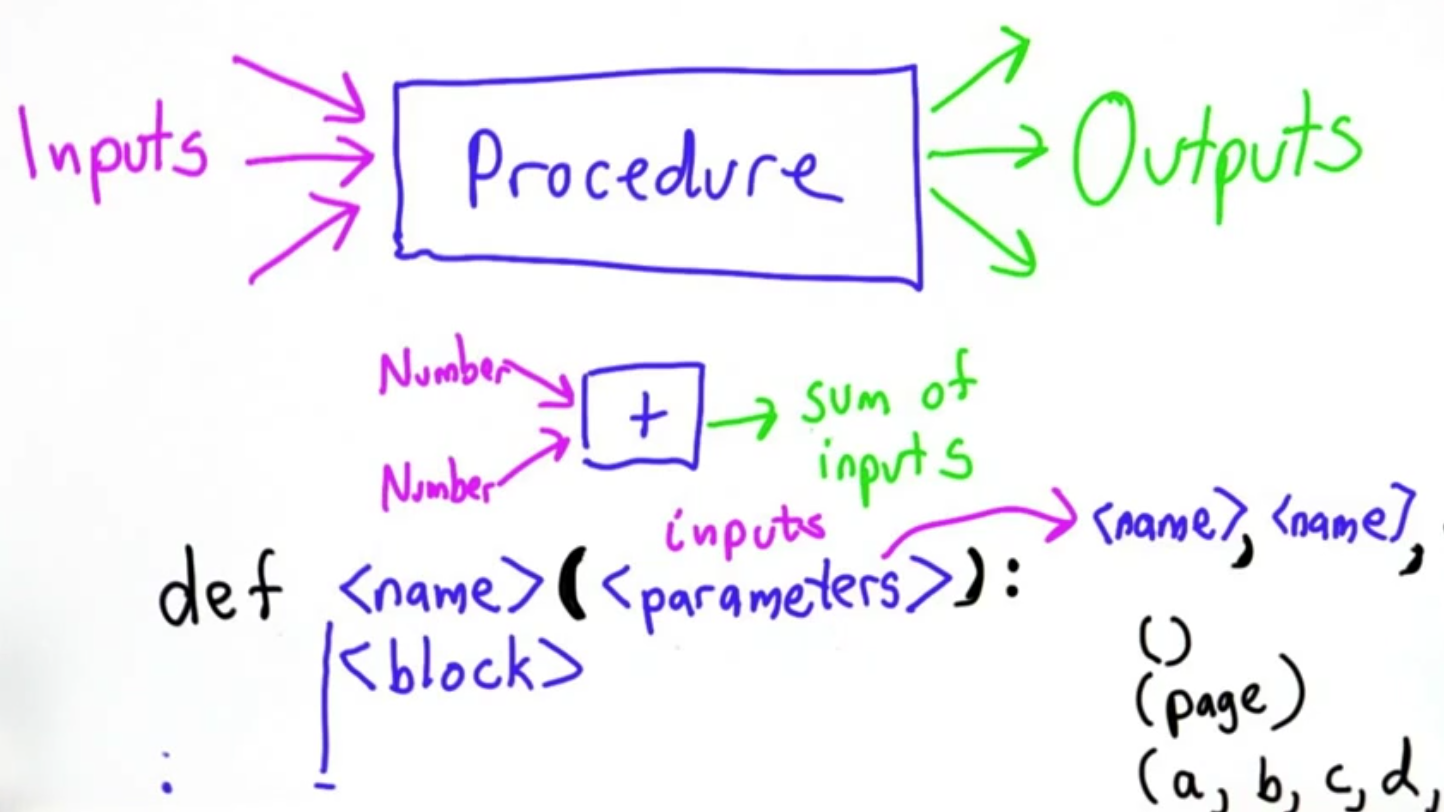 Inputs Procedure Outputs
Number
+ sum of
inputs
Number
inputs
<name>, <name>,
def <name>(<parameters>):
<block>
()
(page)
(a, b, c, d,